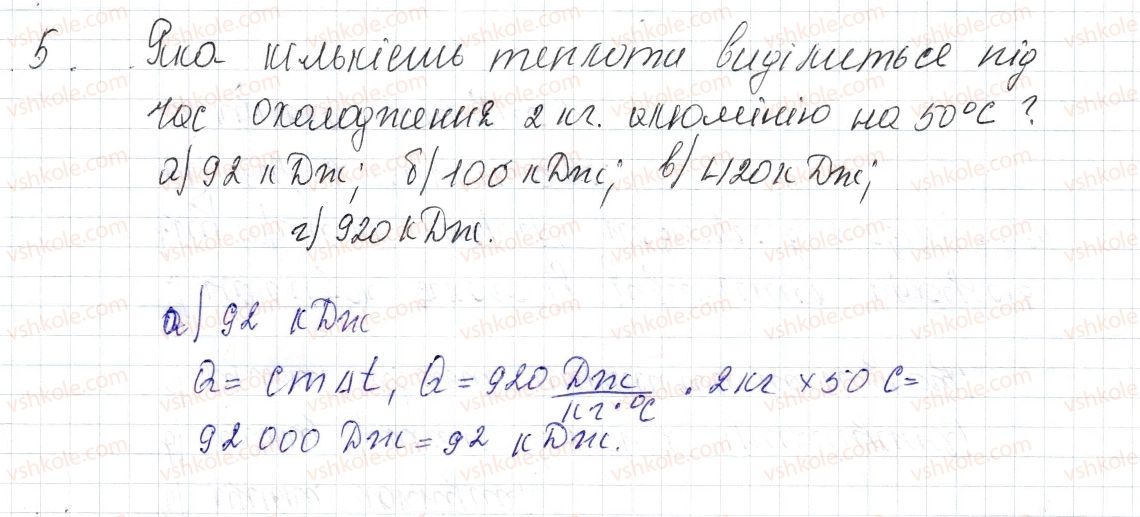 5. Яка кількість теплоти виділиться під
час охолодження 2 кг. алюмінію на 50°C ?
а) 92 кДж; б) 100 кДж; в) 420 кДж;
г) 920 кДж.
а) 92 кДж
Q = cm∆t, Q = 920 Дж/кг·°C · 2 кг × 50 C =
92 000 Дж = 92 кДж.
vshkole.com